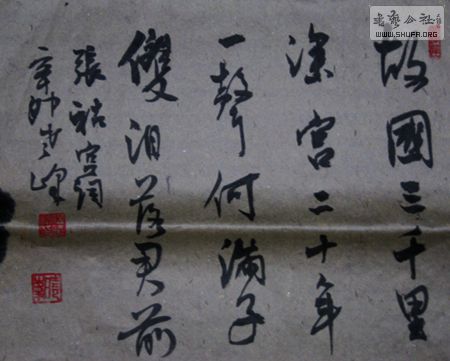 故國三千里
深宮二十年
一聲何滿子
雙淚落君前
張祜宮詞
辛卯
峰
書藝公社
WWW.SHUFA.ORG